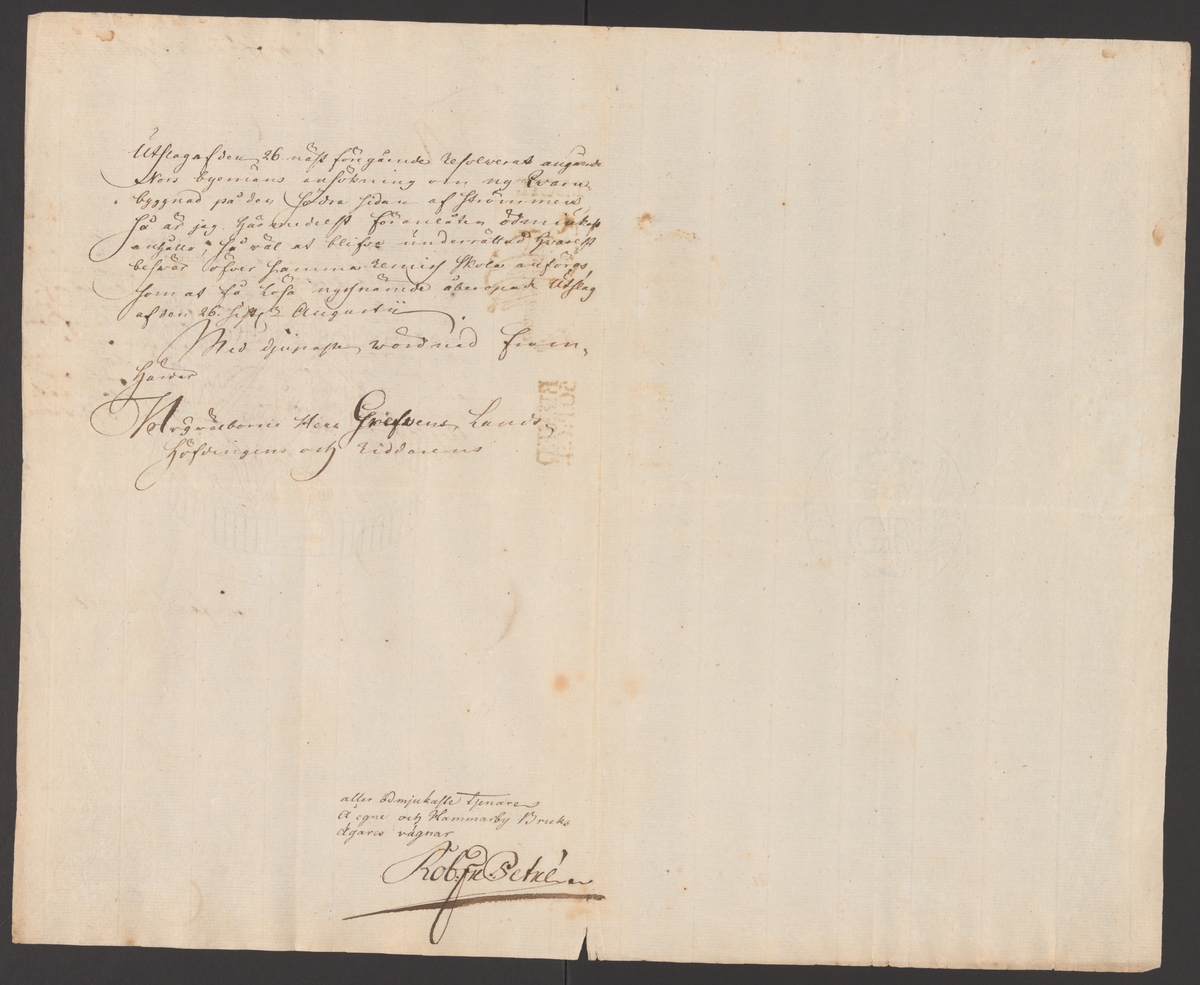 Utslag af den 26 näst föregående resolverat angående
Nors byemäns ansökning om ny Qvarn
byggnad på den södra sidan af strömmen
så är jag härmedelst föranlåten ödmjukast
anhålla, så väl at blifva underrättad hvarest
besvär öfver samma remiss skola anföras,
som at få lösa nyssnämde åberopade Utslag
af den 26. sistl. Augustii.
Med djupaste wördnad fram-
härdar
Högvälborne Herr Grefvens, Lands-
Höfdingens och Riddarens
aller ödmjukaste tjenare
Å egne och Hammarby Bruks
Ägares vägnar
Rob: Fr: Petré